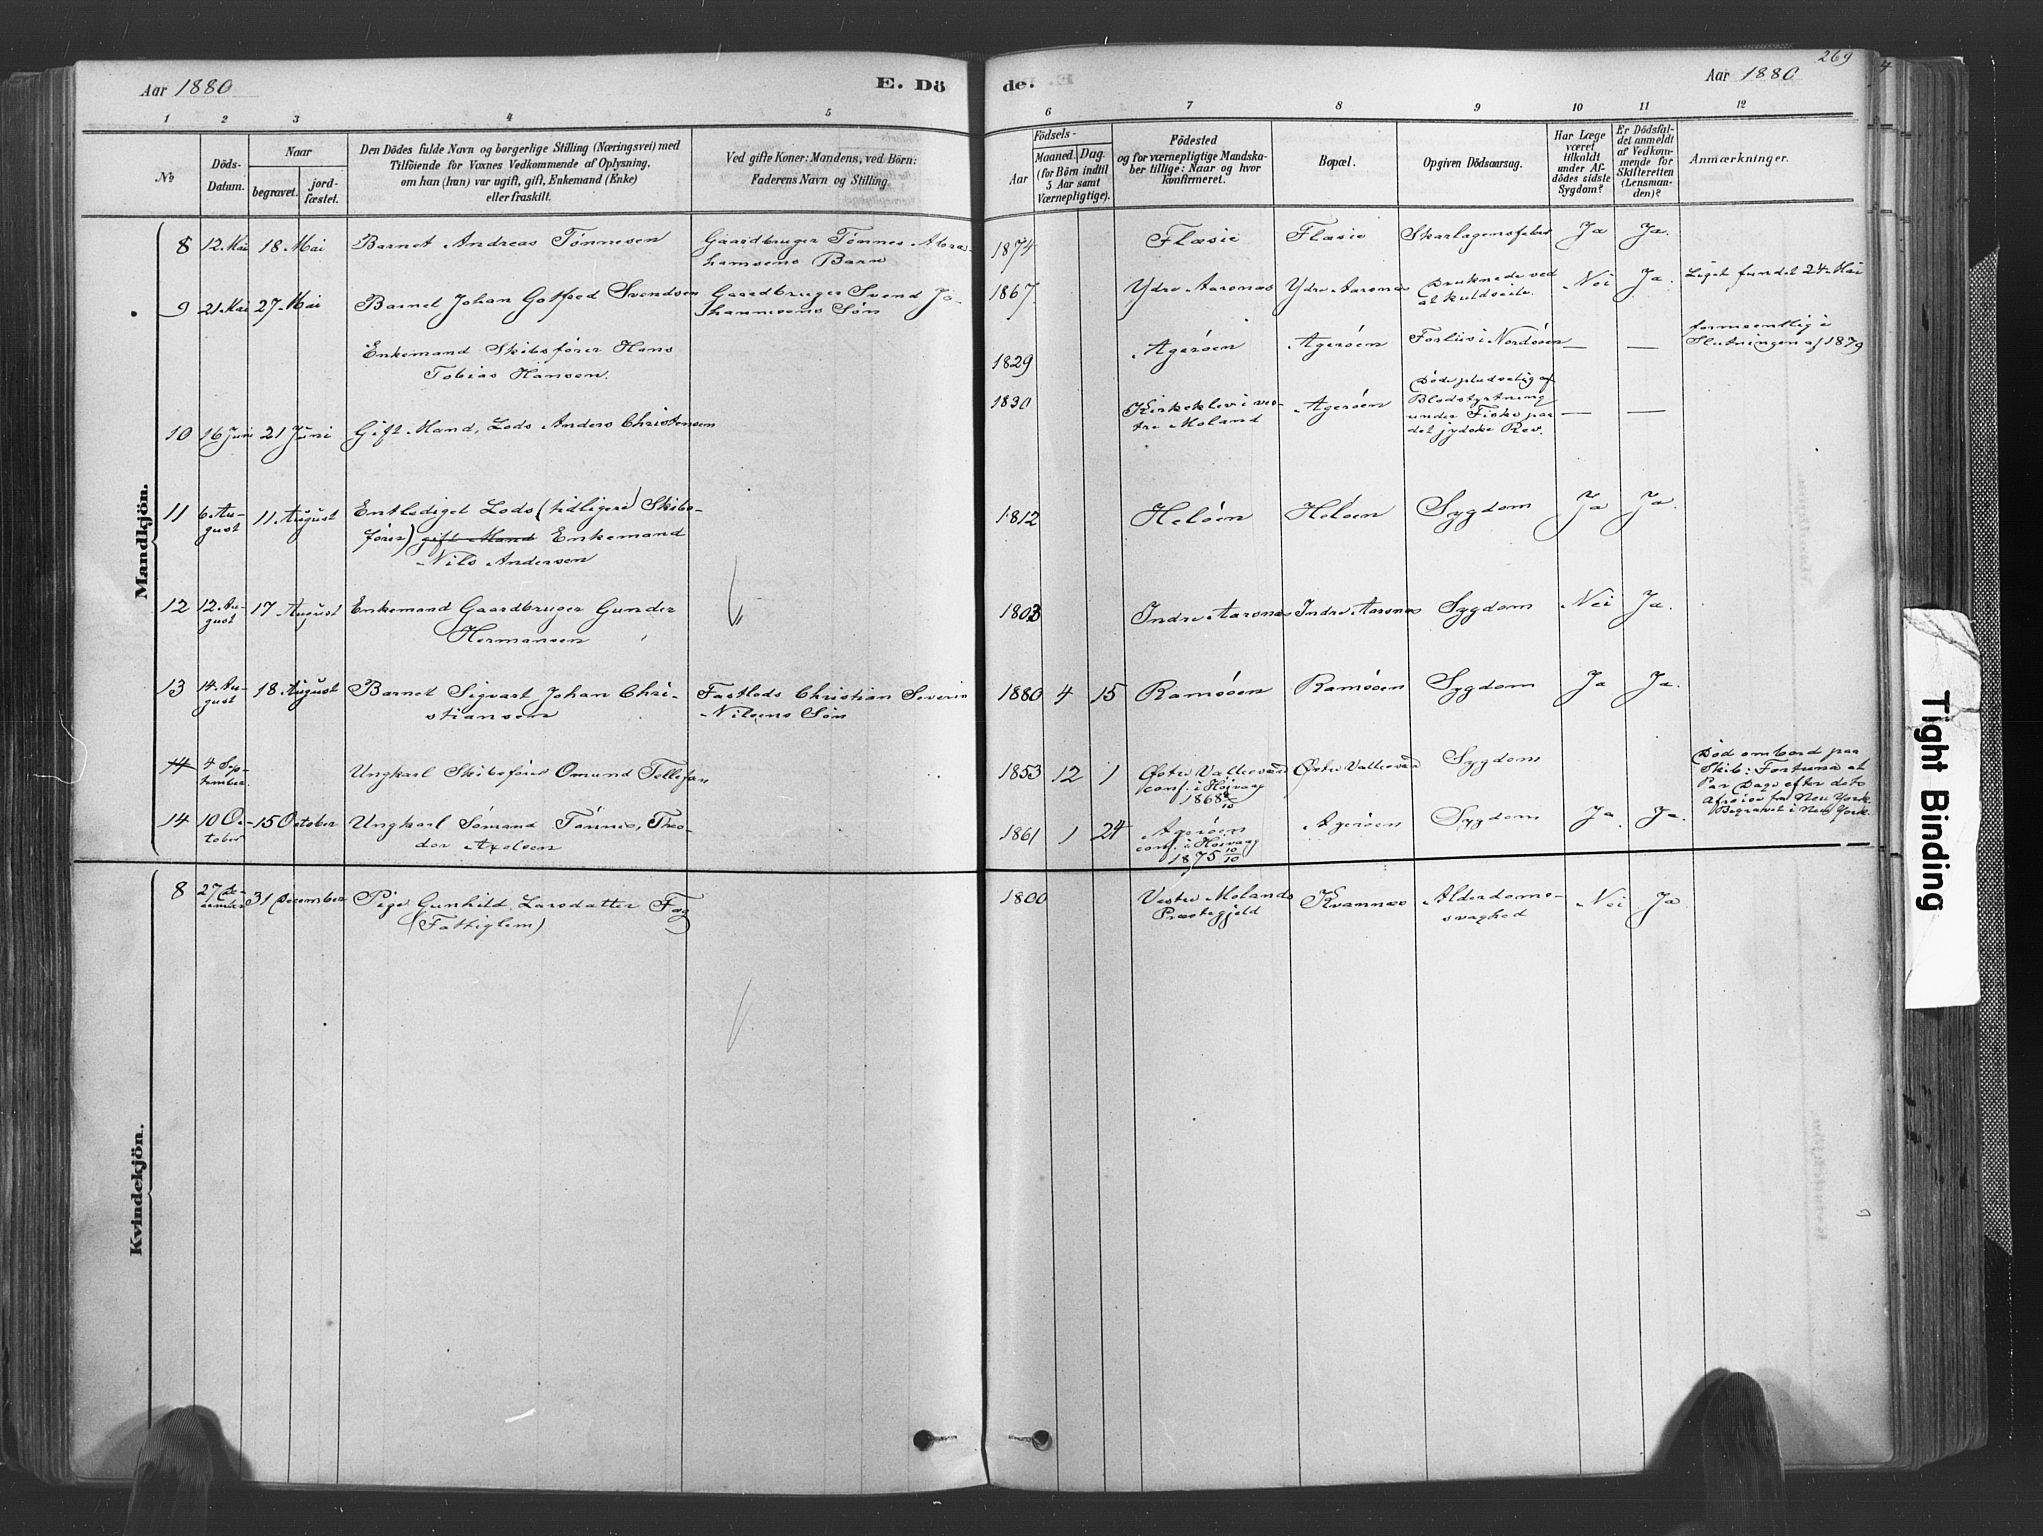 Aar 1880
E. Dö
de.
Aar 1880
269
4
1 2 3 4 5 6 7 8 9 10 11 12
№
Döds-
Datum.
Naar
begravet.
jord-
fæstet.
Den Dödes fulde Navn og borgerlige Stilling (Næringsvei) med
Tilföiende for Voxnes Vedkommende af Oplysning,
om han (hun) var ugift, gift, Enkemand (Enke)
eller fraskilt.
Ved gifte Koner: Mandens, ved Börn:
Faderens Navn og Stilling.
Födsels-
Aar
Maaned. Dag.
(for Börn indtil
5 Aar samt
Værnepligtige).
Födested
og for værnepligtige Mandska-
ber tillige: Naar og hvor
konfirmeret.
Bopæl.
Opgiven Dödsaarsag.
Har Læge
været
tilkaldt
under Af-
dödes sidste
Sygdom?
Er Dödsfal-
det anmeldt
af Vedkom-
mende for
Skifteretten
(Lensman-
den)?
Anmærkninger.
Mandkjön.
8 12. Mai 18 Mai Barnet Andreas Tönnesen
Gaardbruger Tönnes Abra-
hamsens Barn
1874 Flasie Flasie Skarlagensfeber Ja Ja.
9 21 Mai 27 Mai Barnet Johan Gotfred Svendsen
Gaardbruger Svend Jo-
hannsens Sön
1867 Ydre Aaronæs Ydre Aaronæs Druknede ved
at kuldseile. Nei Ja. Liget fundet 24. Mai
Enkemand Skibsförer Hans
Tobias Hansen.
1829 Ageröen Ageröen Forliis i Nordsöen — — formeentlig i
Slutningen af 1879
10 16 Juni 21 Juni Gift Mand, Lods Anders Christensen
1830 Kirkeklev i ves-
tre Moland Ageröen Döde pludselig af
Blodstyrtning
under Fiske paa
det jydske Rev. — —
11 6 Au-
gust 11 August Entlediget Lods (tidligere Skibs-
förer) gift Mand Enkemand
Nils Andersen
1812 Helöen Helöen Sygdom Ja Ja.
12 12. Au-
gust 17 August Enkemand Gaardbruger Gunder
Hermansen
1803 Indre Aaronæs Indre Aaronæs Sygdom Nei Ja.
13 14. Au-
gust 18 August Barnet Sigvart Johan Chri-
stiansen
Fastlods Christian Severin
Nilsens Sön
1880 4 15 Ramsöen Ramsöen Sygdom Ja Ja.
14 4 Sep-
tember Ungkarl Skibsförer Omund Tellefsen
1853 12 1 Östre Vallesværd
conf. i Höivaag
1868 Östre Vallesværd Sygdom
Död ombord paa
Skib: Fortuna et
Par Dage efter dets
Afreise fra New York.
Begravet i New York.
14 10 Oc-
tober 15 October Ungkarl Sömand Tönnes Theo-
dor Axelsen
1861 1 24 Ageröen
conf. i Höivaag
1875 10/10 Ageröen Sygdom Ja Ja.
Kvindekjön.
8 27 De-
cember 31 December Pige Gunhild Larsdatter
(Fattiglem)
1800 Vestre Molands
Præstegjeld Kvannæs Alderdoms-
svaghed Nei Ja
Tight Binding